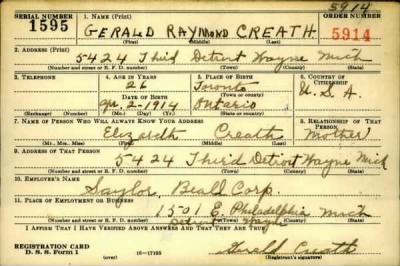 5914
SERIAL NUMBER 1. NAME (Print) ORDER NUMBER
1595 GERALD RAYMOND CREATH 5914
(First) (Middle) (Last)
2. ADDRESS (Print)
5424 Third Detroit Wayne Mich
(Number and street or R. F. D. number) (Town) (County) (State)
3. TELEPHONE 4. AGE IN YEARS 5. PLACE OF BIRTH 6. COUNTRY OF CITIZENSHIP
26 Toronto U.S.A.
DATE OF BIRTH (Town or county)
Ap. 2-1914 Ontario
(Exchange) (Number) (Mo.) (Day) (Yr.) (State or country)
7. NAME OF PERSON WHO WILL ALWAYS KNOW YOUR ADDRESS 8. RELATIONSHIP OF THAT PERSON
Elizabeth Creath Mother
(Mr., Mrs., Miss) (First) (Middle) (Last)
9. ADDRESS OF THAT PERSON
5424 Third Detroit Wayne Mich
(Number and street or R. F. D. number) (Town) (County) (State)
10. EMPLOYER'S NAME
Saylor, Beall Corp.
11. PLACE OF EMPLOYMENT OR BUSINESS
1501 E. Philadelphia Mich
Detroit Wayne
(Number and street or R. F. D. number) (Town) (County) (State)
I AFFIRM THAT I HAVE VERIFIED ABOVE ANSWERS AND THAT THEY ARE TRUE.
REGISTRATION CARD
D. S. S. Form 1 16-17105 Gerald Creath
(Registrant's signature)